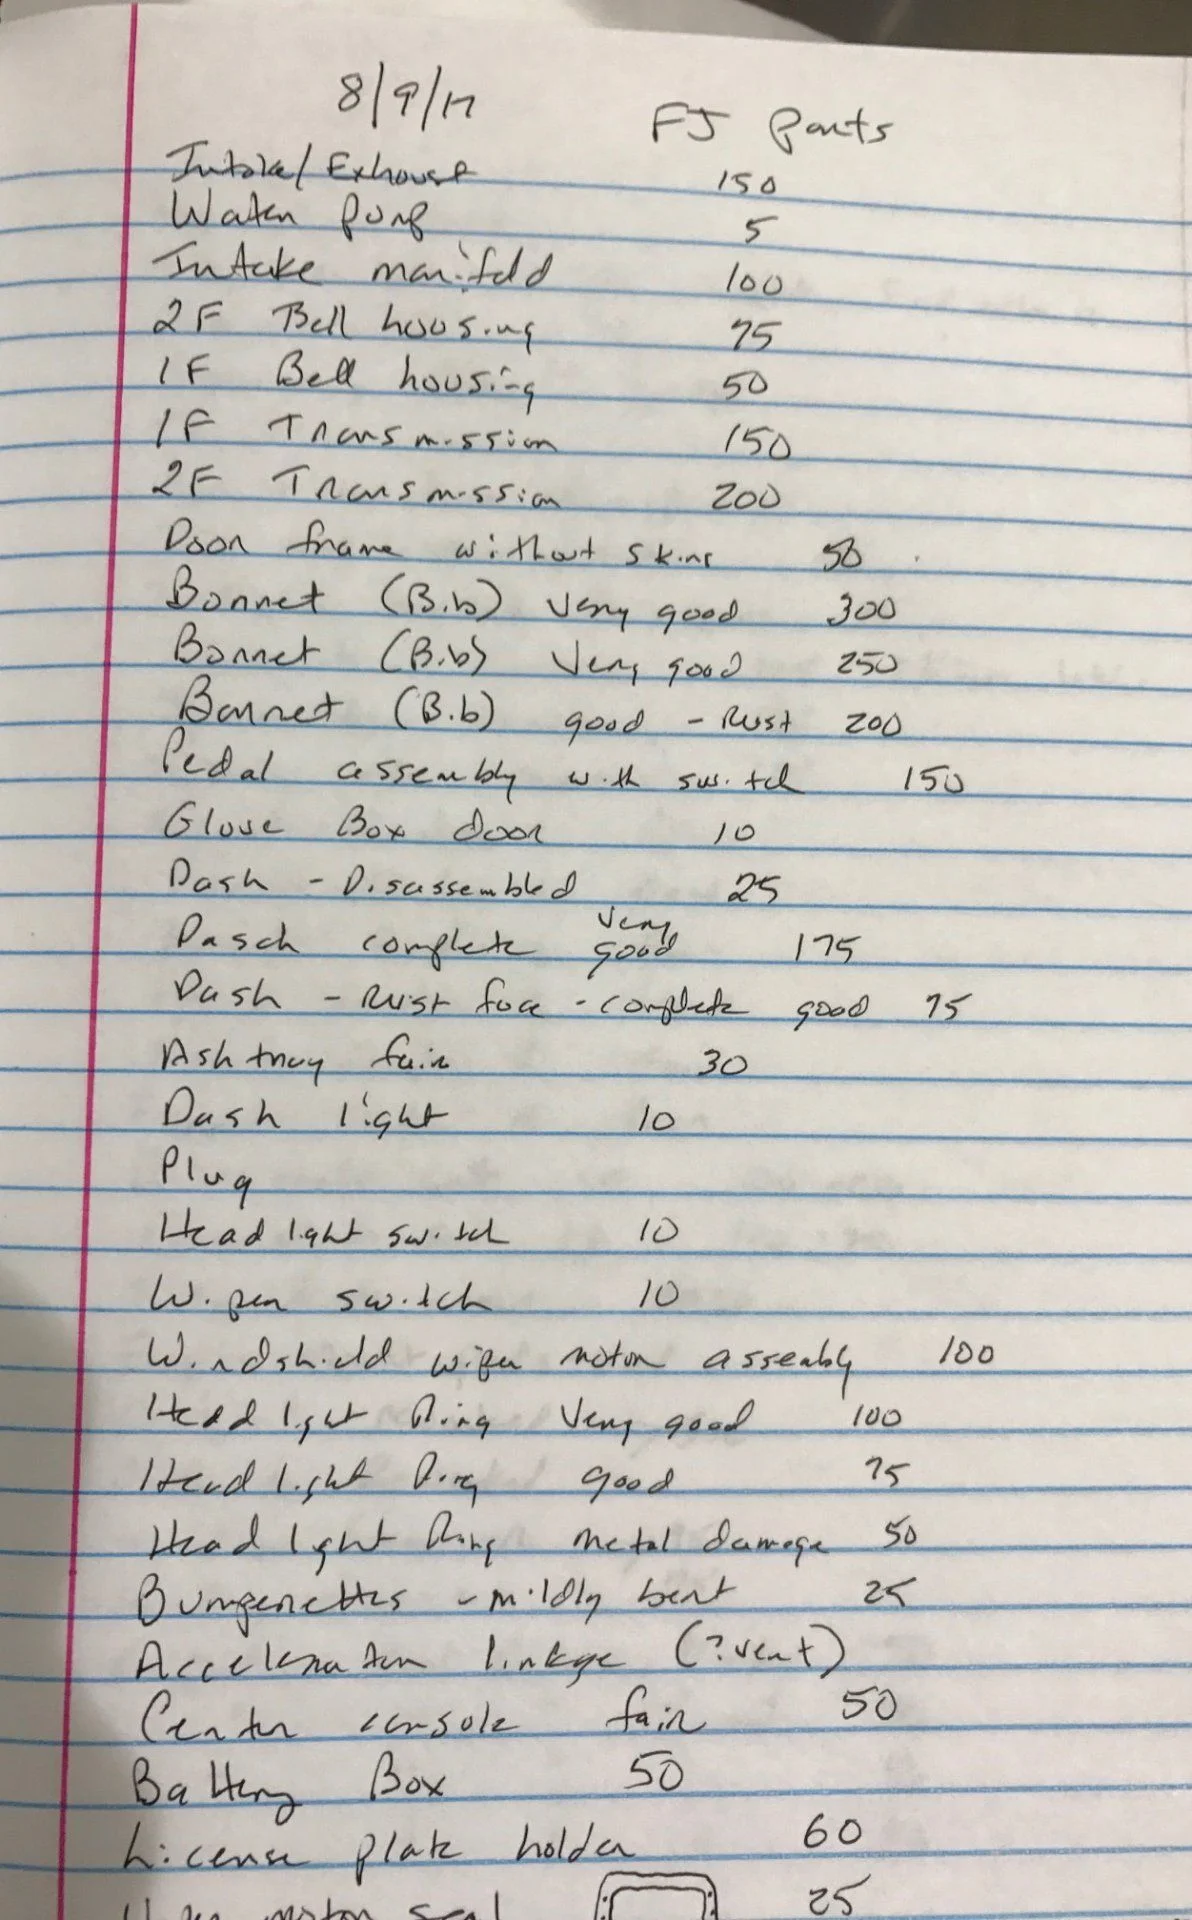 8/9/17 FJ parts
Intake/Exhaust 150
Water pump 5
Intake manifold 100
2F Bell housing 75
1F Bell housing 50
1F Transmission 150
2F Transmission 200
Door frame without skins 50
Bonnet (B.b) very good 300
Bonnet (B.b) very good 250
Bonnet (B.b) good - Rust 200
Pedal assembly with switch 150
Glove Box door 10
Dash - Disassembled 25
Dasch complete very good 175
Dash - Rust face - complete good 75
Ashtray fair 30
Dash light 10
Plug
Headlight switch 10
Wiper switch 10
Windshield wiper motor assembly 100
Headlight Ring Very good 100
Headlight Ring good 75
Headlight Ring metal damage 50
Bumperettes - mildly bent 25
Accelerator linkge (?vent)
Center console fair 50
Battery Box 50
License plate holder 60
motor seal 25